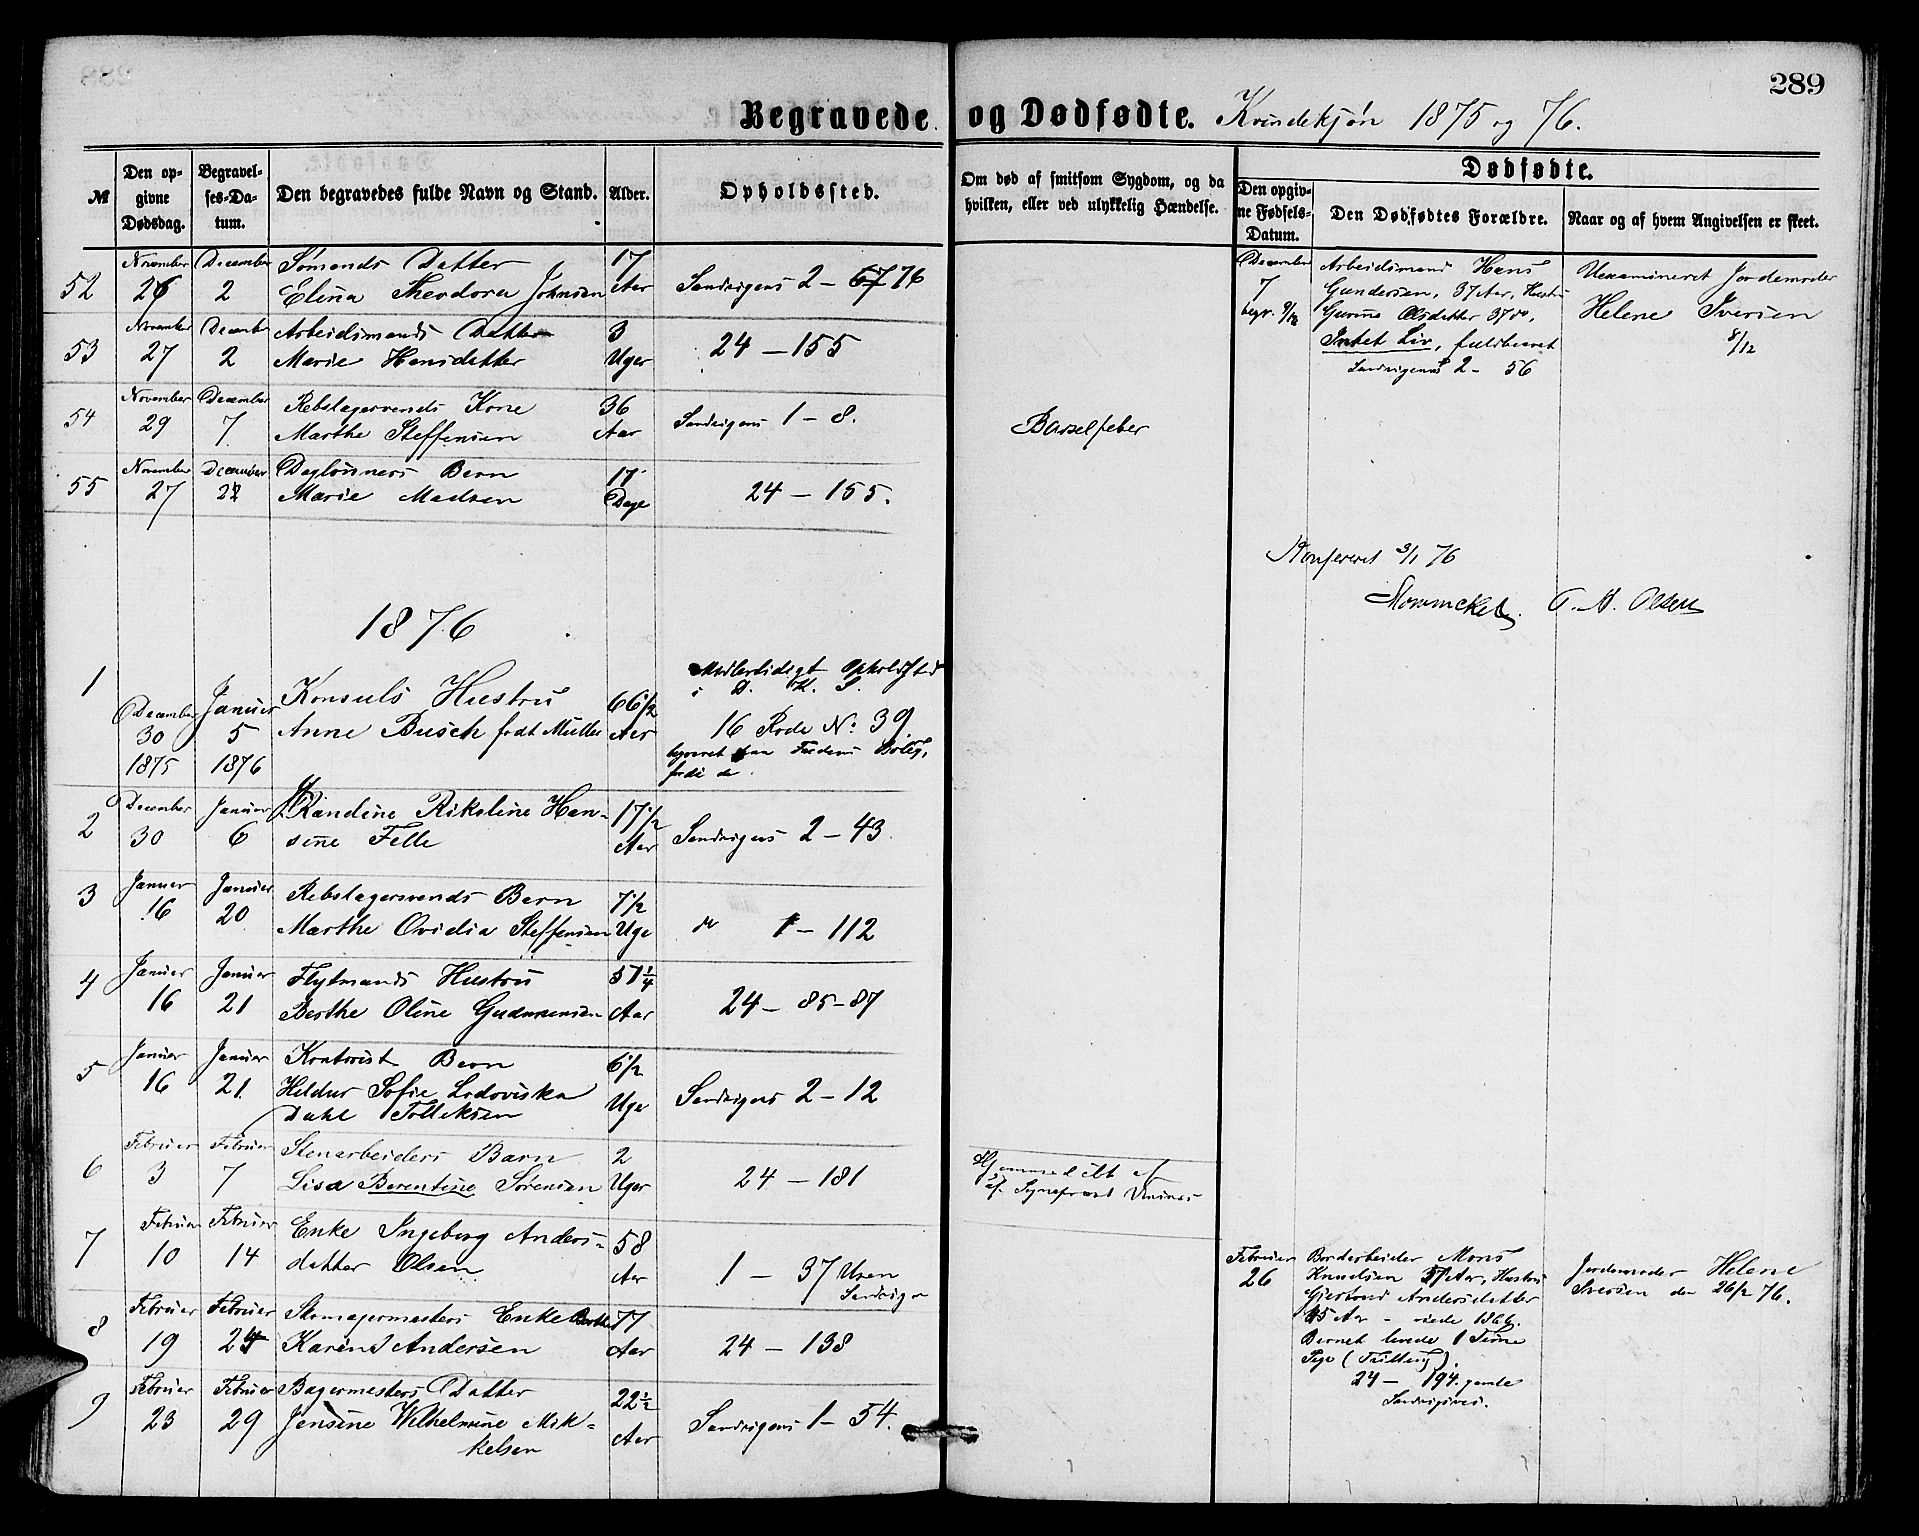 289
Begravede og Dødfødte. Kvindekjøn 1875 og 76.
№
Den opgivne Dødsdag.
Begravelses-Datum.
Den begravedes fulde Navn og Stand.
Alder.
Opholdssted.
Om død af smitsom Sygdom, og da hvilken, eller ved ulykkelig Hændelse.
Dødfødte.
Den opgivne Fødsels-Datum.
Den Dødfødtes Forældre.
Naar og af hvem Angivelsen er skeet.
52 November 26 December 2 Sømands Datter 17 Aar Sandvigens 2 - 67 76
Elina Theodora Johnsen
December 7 begr. 9/12
Arbeidsmand Hans
Gundersen, 37 Aar, Hustru
Olsdatter 37
Intet Liv, fuldbaaret
Sandvigens 2 - 56
Uexamineret Jordemoder
Helene Iversen
8/12
53 November 27 December 2 Arbeidsmands Datter 3 Uger 24 - 155
Marie Hansdatter
54 November 29 December 7 Rebslagersvends Kone 36 Aar Sandvigens 1 - 8.
Marthe Steffensen
Barselfeber
55 November 27 December Daglønners Barn 17 Dage 24 - 155.
Marie Madsen
Konfereret 3/1 76
T. M. Olsen
1876
1 December 30 1875 Januar 5 1876 Konsuls Hustru 66 1/2 Aar
Anne Busch født Müller
Midlertidigt Opholdsted
i D. K. S.
16 Rode N: 39
2 December 30 Januar 6 Randine Rikoline Han-
sine Felle 17 1/2 Aar Sandvigens 2 - 43
3 Januar 16 Januar 20 Rebslagersvends Barn 7 1/2 Uge do 1 - 112
Marthe Ovidia Steffensen
4 Januar 16 Januar 21 Flytmands Hustru 57 1/4 Aar 24 - 85-87
Berthe Oline Gudmunsen
5 Januar 16 Januar 21. Kontorist Barn 6 1/2 Uge Sandvigens 2 - 12
Hildur Sofie Lodoviska
Dahl Tolleksen
6 Februar 3 Februar 7 Stenarbeiders Barn 2 Uger 24 - 181
Lisa Berentine Sørensen
7 Februar 10 Februar 14 Enke Ingeborg Anders-
datter Olsen 58 Aar 1 - 37
Sandvigen
Februar 26
Bordarbeider Mons
Knudsen 37 Aar, Hustru
Gjertrud Andersdatter
Aar - viede 1866.
Barnet levede 1 Time
Pige (Tvilling).
24 - 194. gamle
Jordemoder Helene
Iversen den 26/2 76.
8 Februar 19 Februar 24 Skomagermesters Enke Berthe 77 Aar 24 - 138
Karen Andersen
9 Februar 23 Februar 29 Bagermesters Datter 22 1/2 Aar Sandvigens 1 - 54.
Jensine Wilhelmine Mik-
kelsen